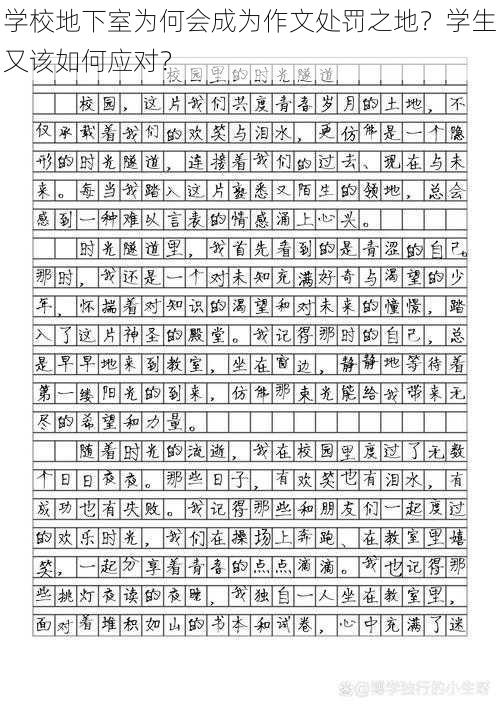 学校地下室为何会成为作文处罚之地？学生
又该如何应对？
校园里的时光隧道
校园，这片我们共度青春岁月的土地，不
仅承载着我们的欢笑与泪水，更仿佛是一个隐
形的时光隧道，连接着我们的过去、现在与未
来。每当我踏入这片熟悉又陌生的领地，总会
感到一种难以言表的情感涌上心头。
时光隧道里，我首先看到的是青涩的自己。
那时，我还是一个对未知充满好奇与渴望的少
年，怀揣着对知识的渴望和对未来的憧憬，踏
入了这片神圣的殿堂。我记得那时的自己，总
是早早地来到教室，坐在窗边，静静地等待着
第一缕阳光的到来，仿佛那束光能给我带来无
尽的希望和力量。
随着时光的流逝，我在校园里度过了无数
个日日夜夜。那些日子，有欢笑也有泪水，有
成功也有失败。我记得那些和朋友们一起度过
的欢乐时光，我们在操场上奔跑、在教室里嬉
笑，一起分享着青春的点点滴滴。我也记得那
些挑灯夜读的夜晚，我独自一人坐在教室里，
面对着堆积如山的书本和试卷，心中充满了迷
@博学独行的小生呀